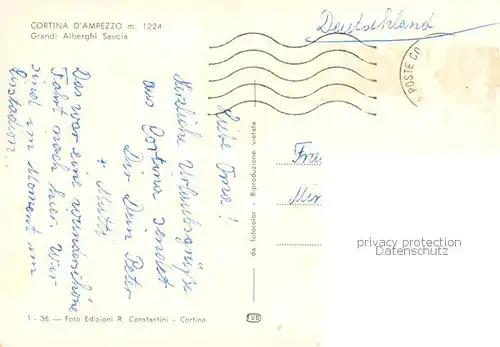 CORTINA D'AMPEZZO m. 1224
Grandi Alberghi Savoia
Deutschland
POSTE CO
Liebe Oma!
Herzliche Urlaubsgrüße
aus Cortina sendet
Dir Dein Peter
+ Mutti
Das war eine wunderschöne
Fahrt nach hier. Wir
sind im Moment am
da fotocolor - Riproduzione vietata
privacy protection
Datenschutz
1 - 36 — Foto Edizioni R. Constantini - Cortina